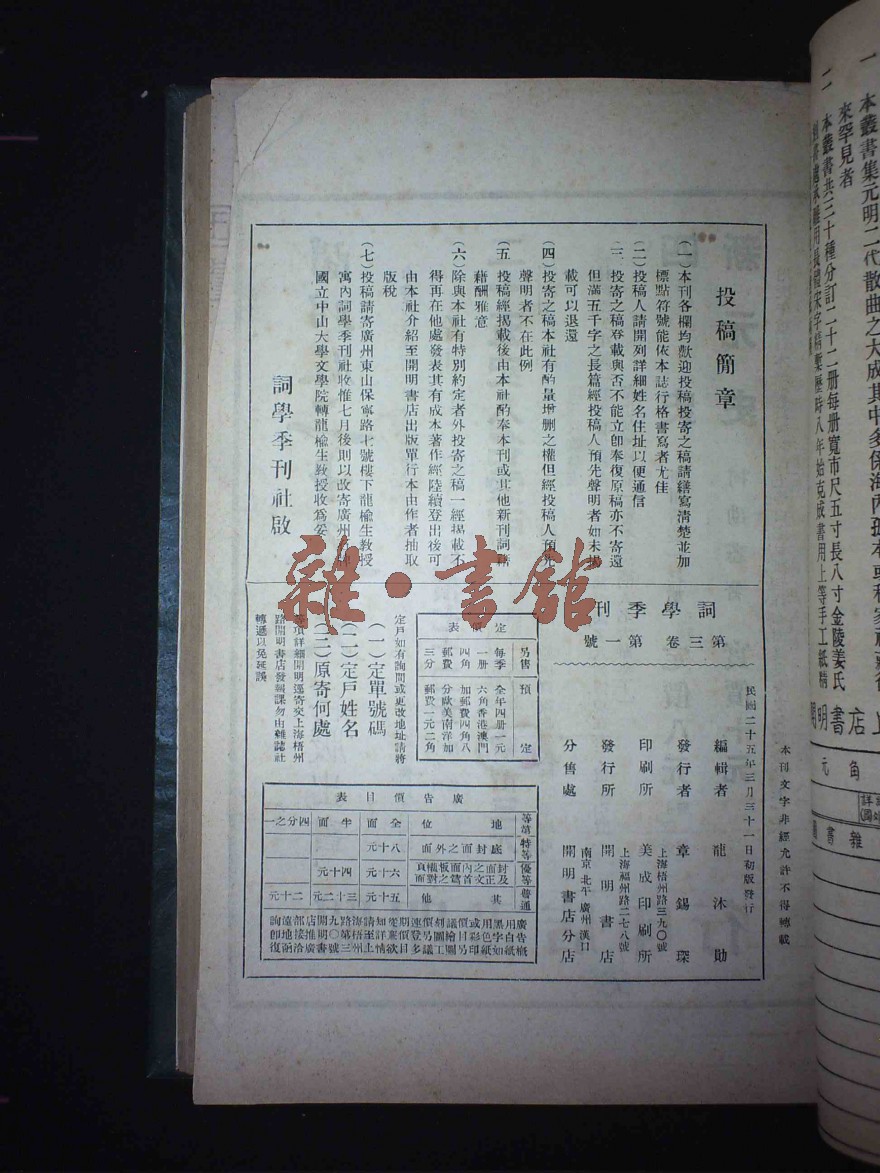 一 本叢書集元明二代散曲之大成其中多係海內孤本或私家
來罕見者
二 本叢書共三十種分訂二十二冊每冊寬市尺五寸長八寸金陵姜氏
宋字精槧歷時八年始克成書用上等手工紙精
明書店
投稿簡章
(一)本刊各欄均歡迎投稿投寄之稿請繕寫清楚並加
標點符號能依本誌行格書寫者尤佳
(二)投稿人請開列詳細姓名住址以便通信
(三)投寄之稿登載與否不能立卽奉復原稿亦不寄還
但滿五千字之長篇經投稿人預先聲明者如未揭
載可以退還
(四)投寄之稿本社有酌量增刪之權但經投稿人預先
聲明者不在此例
(五)投稿經揭載後由本社酌奉本刊或其他新刊詞籍
藉酬雅意
(六)除與本社有特別約定者外投寄之稿一經揭載不
得再在他處發表其有成本著作經陸續登出後可
由本社介紹至開明書店出版單行本由作者抽取
版稅
(七)投稿請寄廣州東山保寧路七號樓下龍楡生教授
寓內詞學季刊社收惟七月後則以改寄廣州
國立中山大學文學院轉龍楡生教授收爲妥
詞學季刊社啟
雜·書館
本刊文字非經允許不得轉載
民國二十五年三月三十一日初版發行
詞學季刊
第三卷 第一號
編輯者 龍沐勛
發行者 章錫琛
上海福州路三九〇號
印刷所 美成印刷所
上海福州路二七八號
發行所 開明書店
南京 北平 廣州 漢口
分售處 開明書店分店
定價表
另售 預定
每季一冊四角郵費三分
全年四冊一元六角香港澳門加郵費四角八分歐美南洋加郵費一元二角
定戶如有詢問或更改地址請將
(一)定單號碼
(二)定戶姓名
(三)原寄何處
等項詳細開明逕寄交上海梧州
路開明書店發報課勿由雜誌社
轉遞以免延誤
廣告價目表
等第 地位 全面 半面 四分之一
特等 底封面之外面 八十元
優等 封面之內面及正文首篇之對面 六十元 四十元
普通 其他 五十元 三十二元 二十元